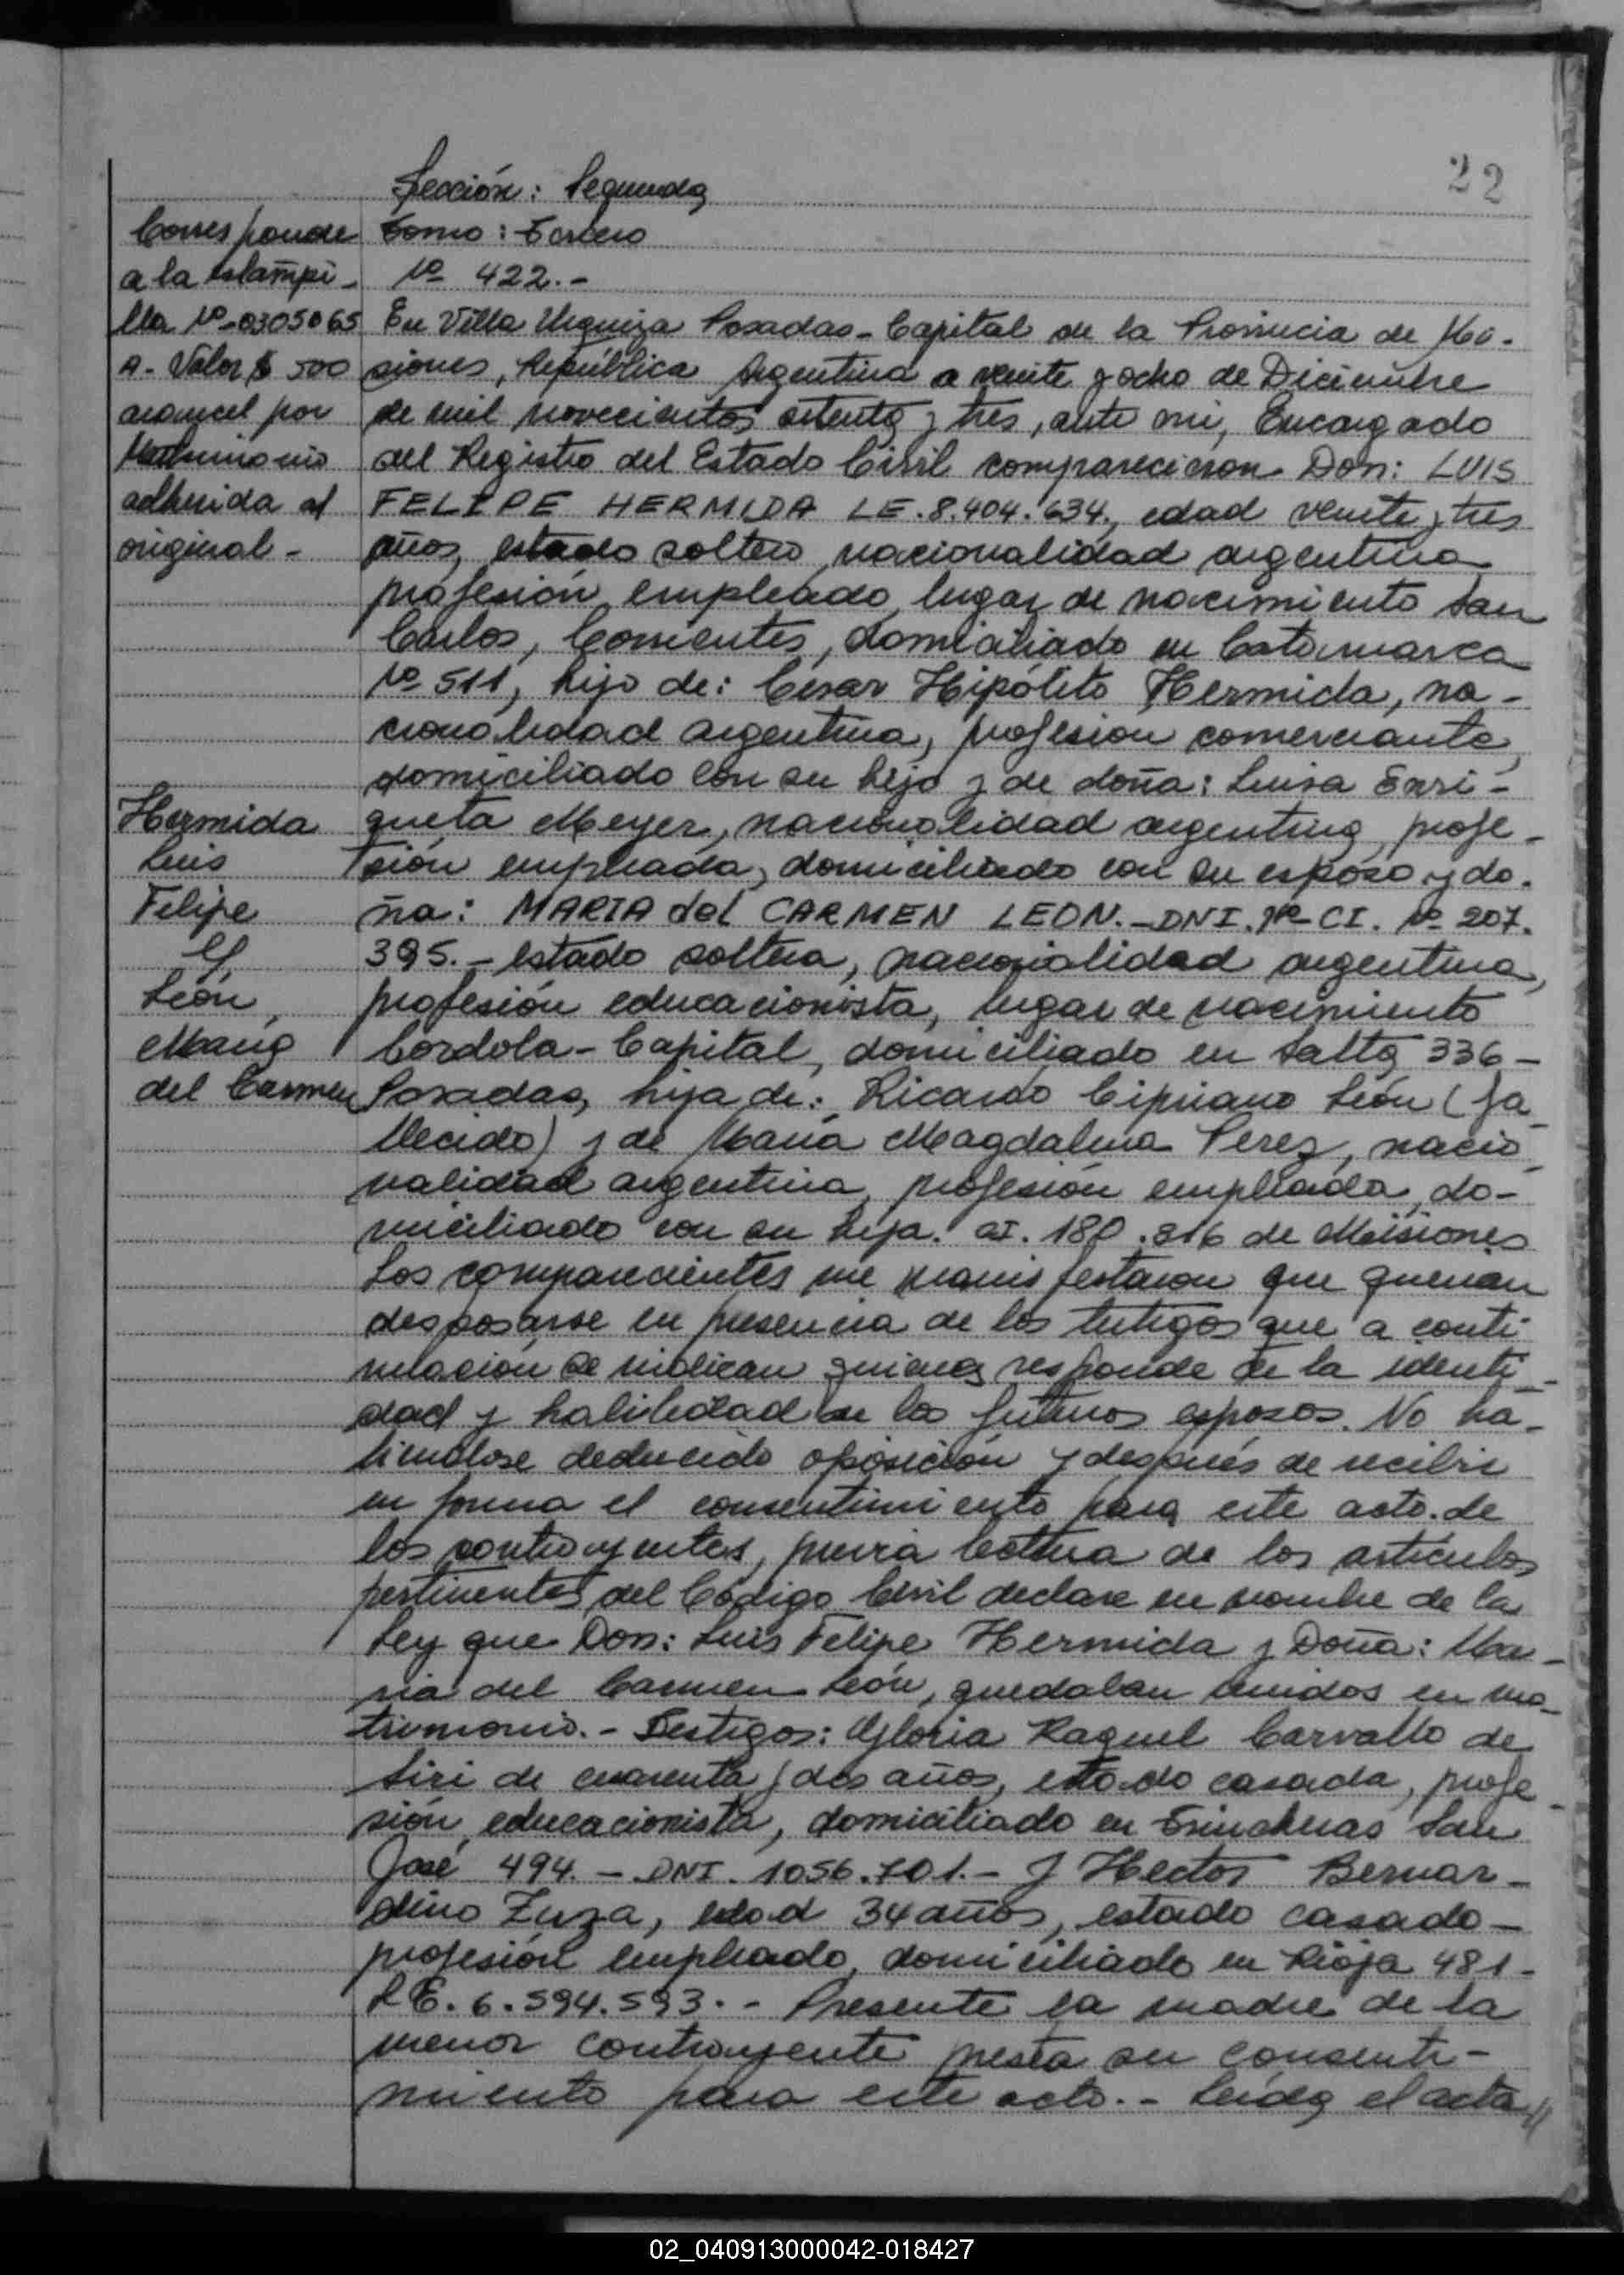 22
Sección: Segunda
Tomo: Tercero
Nº 422.-
Corresponde
a la estampi-
lla Nº 0305065
A- Valor $ 500
arancel por
Matrimonio
adherida al
original-
En Villa Urquiza Posadas-Capital de la Provincia de Mi-
siones, República Argentina a veinte y ocho de Diciembre
de mil novecientos setenta y tres, ante mi, Encargado
del Registro del Estado Civil comparecieron Don: LUIS
FELIPE HERMIDA LE.8.404.634., edad veinte y tres
años, estado soltero, nacionalidad argentina
profesión empleado, lugar de nacimiento San
Carlos, Corrientes, domiciliado en Catamarca
Nº 511, hijo de: Cesar Hipólito Hermida, na-
cionalidad argentina, profesion comerciante,
domiciliado con su hijo y de doña: Luisa Enri-
Hermida
Luis
Felipe
y
León,
María
del Carmen
queta Meyer, nacionalidad argentina, profe-
sión empleada, domiciliado con su esposo y do-
ña: MARIA del CARMEN LEON.-DNI. Nº CI. Nº 207.
395.- estado soltera, nacionalidad argentina,
profesión educacionista, lugar de nacimiento
Cordoba-Capital, domiciliado en Salta 336-
Posadas, hija de: Ricardo Cipriano León (fa-
llecido) y de María Magdalena Perez, nacio-
nalidad argentina, profesión empleada, do-
miciliado con su hija. CI. 180.316 de Misiones
Los comparecientes me manifestaron que querian
desposarse en presencia de los testigos que a conti-
nuacion se indican quienes responde de la identi-
dad y habilidad de los futuros esposos. No ha-
biendose deducido oposición y después de recibir
en forma el consentimiento para este acto de
los contrayentes, previa lectura de los artículos
pertinentes del Código Civil declare en nombre de la
Ley que Don: Luis Felipe Hermida y Doña: Ma-
ria del Carmen León, quedaban unidos en ma-
trimonio.- Testigos: Gloria Raquel Carvallo de
Siri de cuarenta y dos años, estado casada, profe-
sión educacionista, domiciliado en Trincheras San
José 494.- DNI. 1056.701.- y Hector Bernar-
dino Zuza, edad 34 años, estado casado-
profesión empleado, domiciliado en Rioja 481-
L E. 6.594.593.- Presente la madre de la
menor contrayente presta su consenti-
miento para este acto.- Leída el acta//
02_040913000042-018427